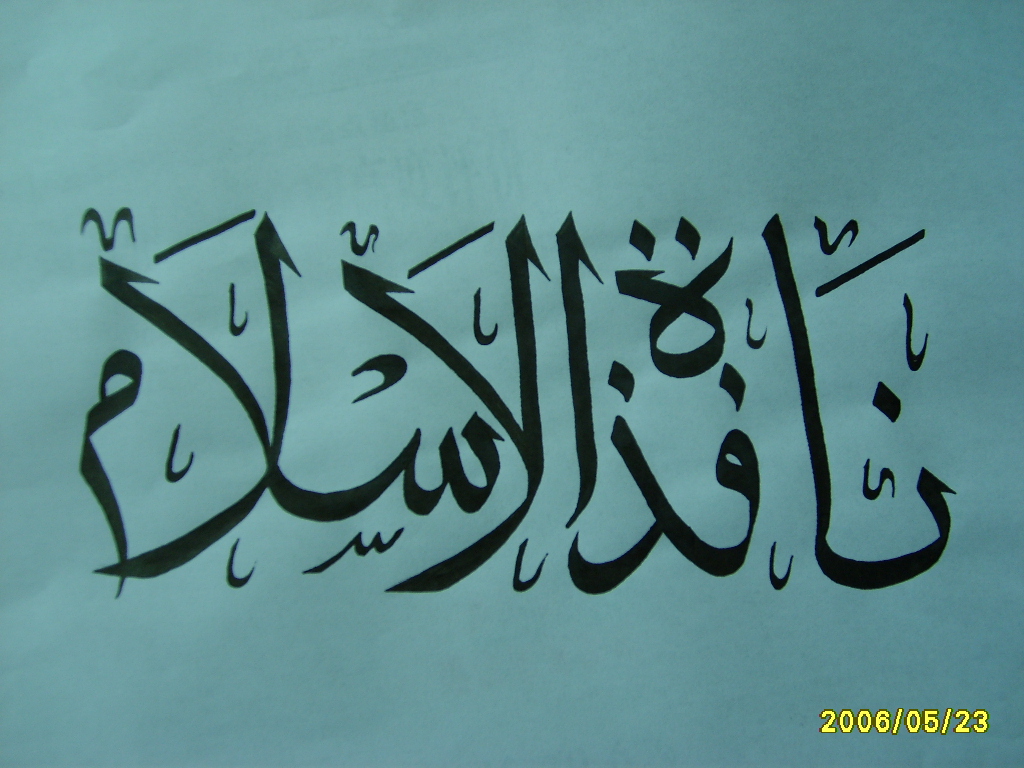 نافذة الاسلام
2006/05/23